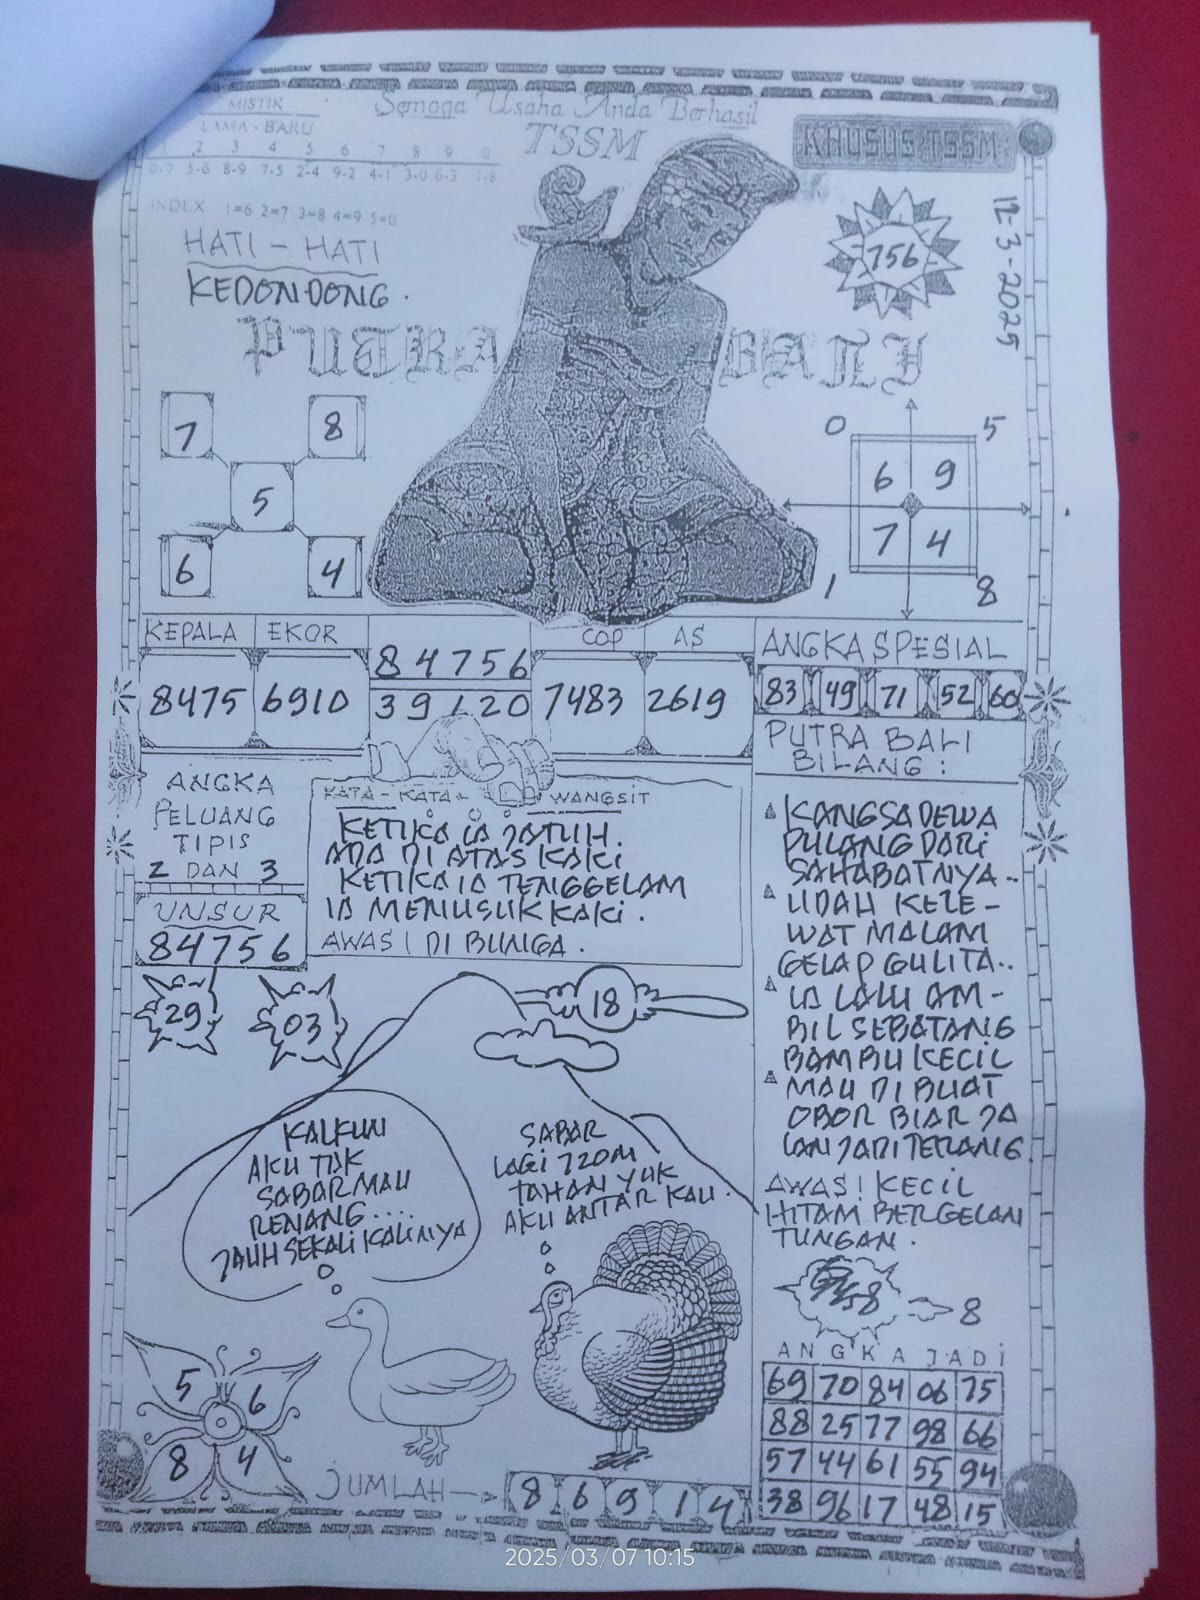 MISTIK
LAMA - BARU
1 2 3 4 5 6 7 8 9 0
0-7 5-6 8-9 7-5 2-4 9-2 4-1 3-0 6-3 1-8
INDEX 1=6 2=7 3=8 4=9 5=0
Semoga Usaha Anda Berhasil
TSSM
KHUSUS TSSM
12-3-2025
756
HATI - HATI
KEDONDONG.
PUTRA BALI
7 8
5
6 4
0 5
6 9
7 4
1 8
KEPALA EKOR
8475 6910
84756
39120
COP AS
7483 2619
ANGKA SPESIAL
83 49 71 52 60
ANGKA
PELUANG
TIPIS
2 DAN 3
UNSUR
84756
29 03
KATA - KATA - WANGSIT
KETIKA IA JATUH.
ADA DI ATAS KAKI
KETIKA IA TENGGELAM
IA MENUSUK KAKI.
AWAS! DI BUNGA.
PUTRA BALI
BILANG :
KANGSA DEWA
PULANG DARI
SAHABATNYA..
UDAH KELE-
WAT MALAM
GELAP GULITA..
IA LALU AM-
BIL SEBATANG
BAMBU KECIL
MAU DI BUAT
OBOR BIAR JA
LAN JADI TERANG.
AWAS! KECIL
HITAM BERGELAN
TUNGAN.
8
18
KALKUN
AKU TAK
SABAR MAU
RENANG....
JAUH SEKALI KALINYA
SABAR
LAGI 720M
TAHAN YUK
AKU ANTAR KAU.
5 6
8 4
JUMLAH
8 6 9 1 4
ANGKA JADI
69 70 84 06 75
88 25 77 98 66
57 44 61 55 94
38 96 17 48 15
2025/03/07 10:15